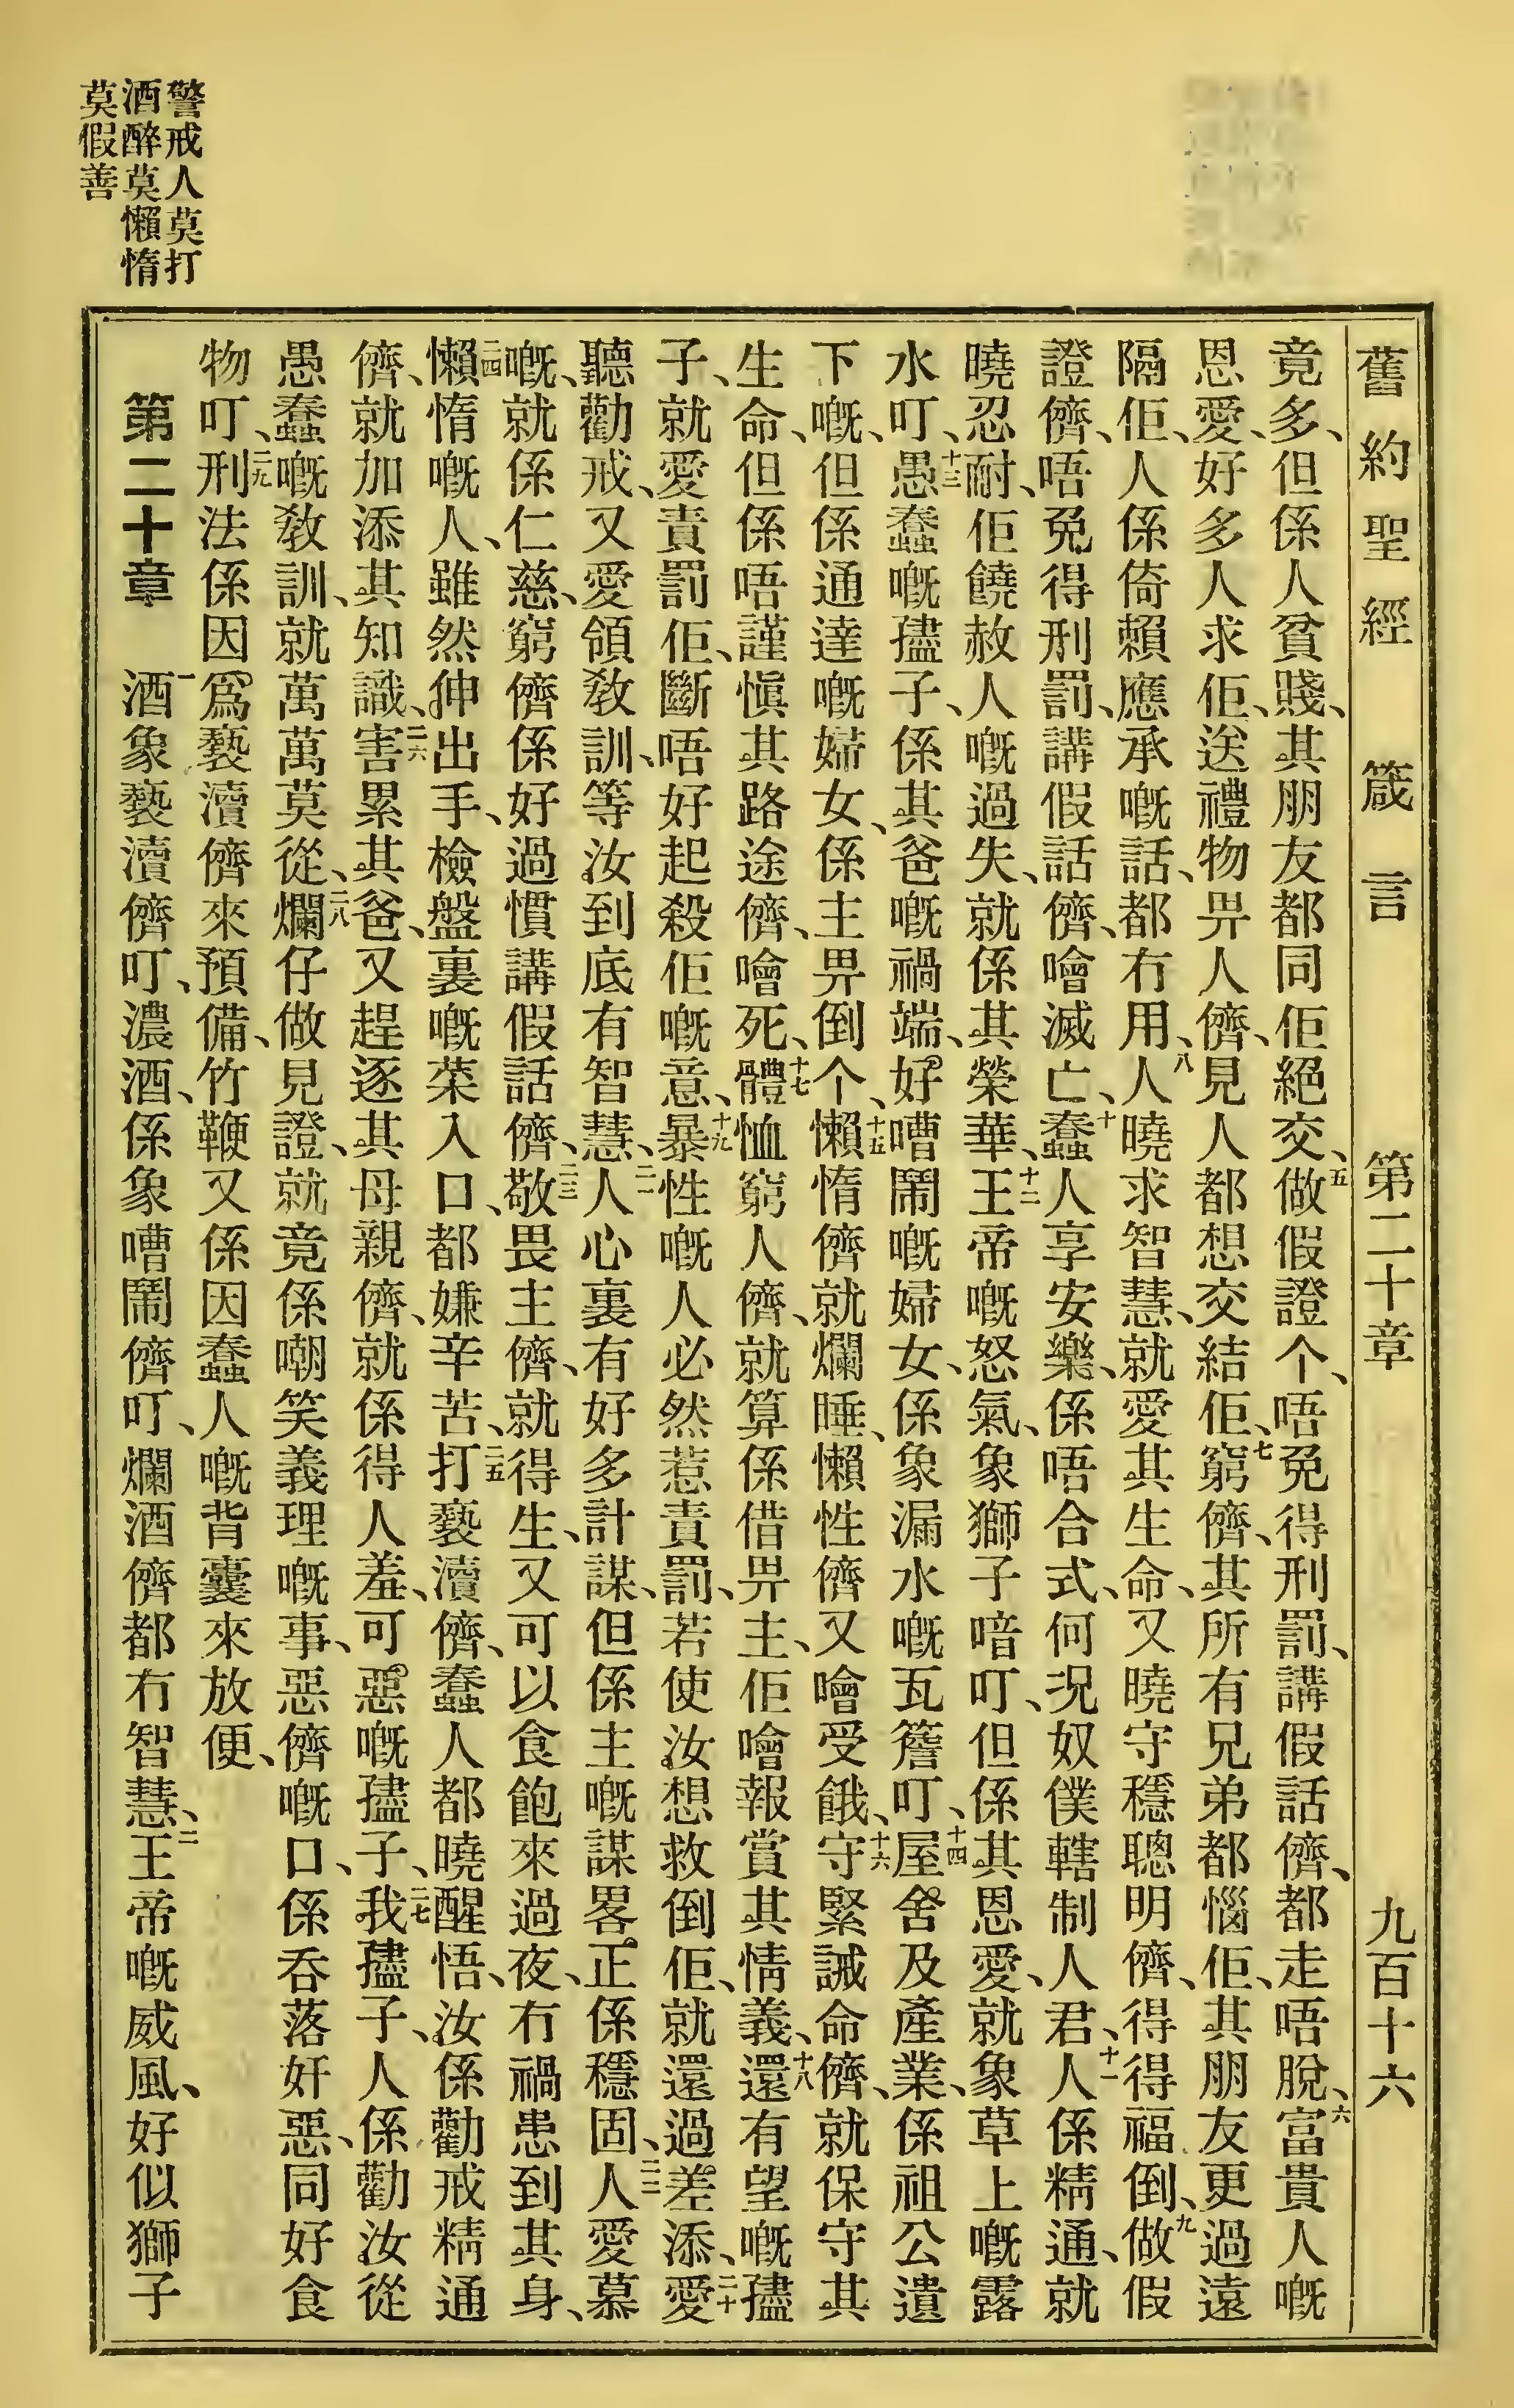 舊約聖經 箴言 第二十章 九百十六
竟多、但係人貧賤、其朋友都同佢絕交、五做假證个、唔免得刑罰、講假話儕、都走唔脫、六富貴人嘅
恩愛、好多人求佢、送禮物畀人儕、見人都想交結佢、七窮儕、其所有兄弟都惱佢、其朋友更過遠
隔佢、人係倚賴應承嘅話、都冇用、八人曉求智慧、就愛其生命、又曉守穩聰明儕、得得福倒、九做假
證儕、唔免得刑罰、講假話儕、噲滅亡、十蠢人享安樂、係唔合式、何況奴僕轄制人君、十一人係精通、就
曉忍耐、佢饒赦人嘅過失、就係其榮華、十二王帝嘅怒氣、象獅子喑叮、但係其恩愛、就象草上嘅露
水叮、十三愚蠢嘅𡥧子、係其爸嘅禍端、好嘈鬧嘅婦女、係象漏水嘅瓦簷叮、十四屋舍及產業、係祖公遺
下嘅、但係通達嘅婦女、係主畀倒个、十五懶惰儕就爛睡、懶性儕又噲受餓、十六守緊誡命儕、就保守其
生命、但係唔謹慎其路途儕、噲死、十七體恤窮人儕、就算係借畀主、佢噲報賞其情義、十八還有望嘅𡥧
子、就愛責罰佢、斷唔好起殺佢嘅意、十九暴性嘅人必然惹責罰、若使汝想救倒佢、就還過差添、二十愛
聽勸戒、又愛領敎訓、等汝到底有智慧、二一人心裏有好多計謀、但係主嘅謀畧正係穩固、二二人愛慕
嘅、就係仁慈、窮儕係好過慣講假話儕、二三敬畏主儕、就得生、又可以食飽來過夜、冇禍患到其身、
二四懶惰嘅人、雖然伸出手、檢盤裏嘅菜入口、都嫌辛苦、二五打褻瀆儕、蠢人都曉醒悟、汝係勸戒精通
儕、就加添其知識、二六害累其爸、又趕逐其母親儕、就係得人羞、可惡嘅𡥧子、二七我𡥧子、人係勸汝從
愚蠢嘅敎訓、就萬萬莫從、二八爛仔做見證、就竟係嘲笑義理嘅事、惡儕嘅口、係吞落奸惡、同好食
物叮、二九刑法係因爲褻瀆儕來預備、竹鞭又係因蠢人嘅背囊來放便、
第二十章 一酒象褻瀆儕叮、濃酒、係象嘈鬧儕叮、爛酒儕都冇智慧、二王帝嘅威風、好似獅子
警戒人莫打
酒醉莫懶惰
莫假善